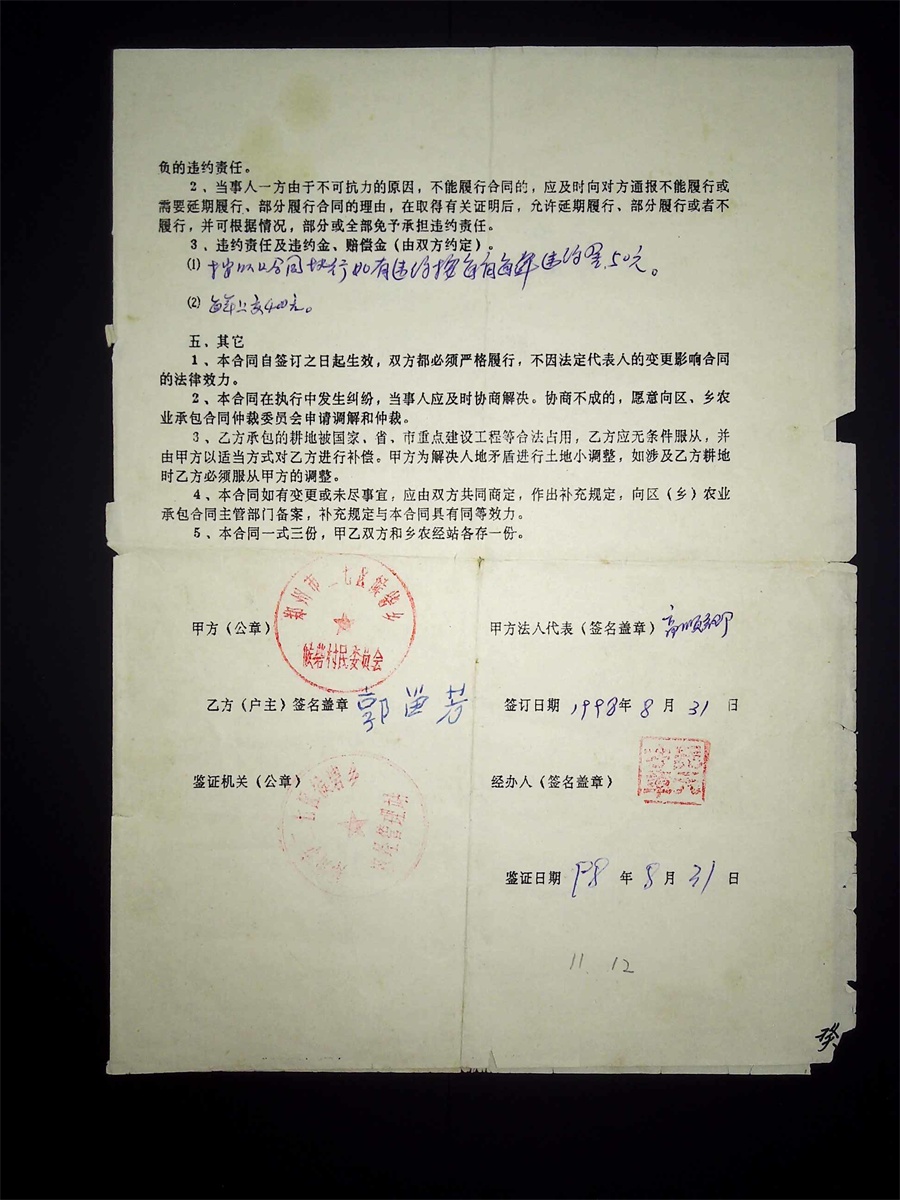 负的违约责任。
2、当事人一方由于不可抗力的原因，不能履行合同的，应及时向对方通报不能履行或
需要延期履行、部分履行合同的理由，在取得有关证明后，允许延期履行、部分履行或者不
履行，并可根据情况，部分或全部免予承担违约责任。
3、违约责任及违约金、赔偿金（由双方约定）。
⑴ 以上合同执行如有违约按每亩每年违约 50元。
⑵ 每年上交400元。
五、其它
1、本合同自签订之日起生效，双方都必须严格履行，不因法定代表人的变更影响合同
的法律效力。
2、本合同在执行中发生纠纷，当事人应及时协商解决。协商不成的，愿意向区、乡农
业承包合同仲裁委员会申请调解和仲裁。
3、乙方承包的耕地被国家、省、市重点建设工程等合法占用，乙方应无条件服从，并
由甲方以适当方式对乙方进行补偿。甲方为解决人地矛盾进行土地小调整，如涉及乙方耕地
时乙方必须服从甲方的调整。
4、本合同如有变更或未尽事宜，应由双方共同商定，作出补充规定，向区（乡）农业
承包合同主管部门备案，补充规定与本合同具有同等效力。
5、本合同一式三份，甲乙双方和乡农经站各存一份。
郑州市二七区侯寨乡
侯寨村民委员会
甲方（公章） 甲方法人代表（签名盖章）
乙方（户主）签名盖章 郭留芳 签订日期 1998年 8 月 31 日
鉴证机关（公章） 经办人（签名盖章）
七区侯寨乡
鉴证日期 98 年 8 月 31 日
11.12